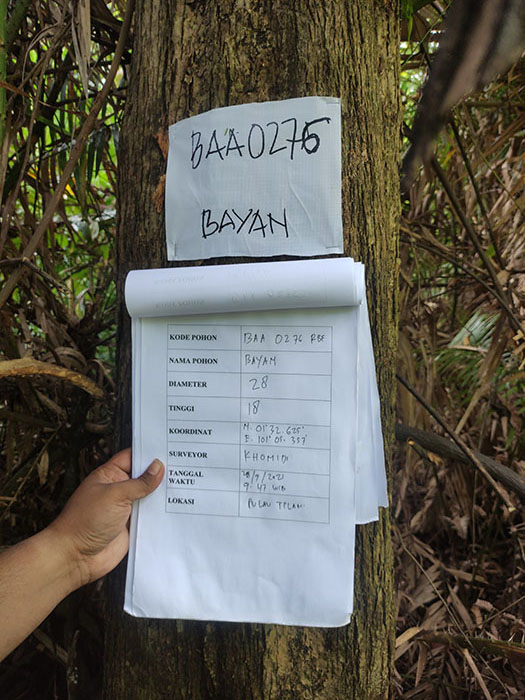 BAA0276
BAYAN
KODE POHON BAA 0276 RBF
NAMA POHON BAYAN
DIAMETER 28
TINGGI 18
KOORDINAT N. 01°32.625'
E. 101°01.337'
SURVEYOR KHOMIDI
TANGGAL 28/9/2021
WAKTU 9:47 WIB
LOKASI PULAU